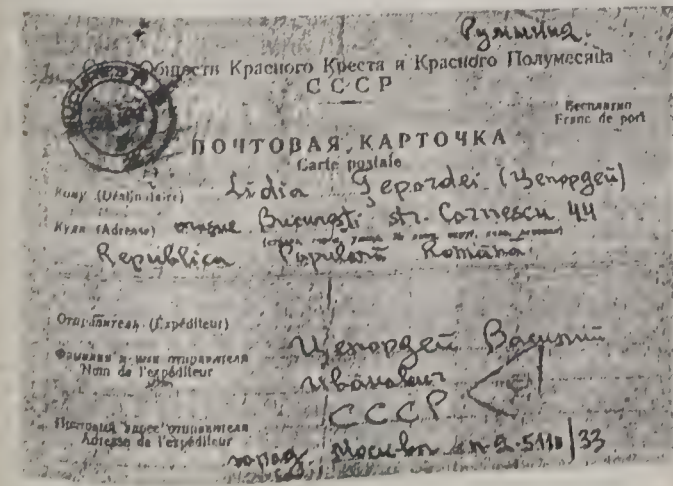 Румыния
Обществ Красного Креста и Красного Полумесяца
СССР
Бесплатно
Franc de port
ПОЧТОВАЯ КАРТОЧКА
Carte postale
Кому (Destinataire) Lidia Țepordei (Цепордей)
Куда (Adresse) București str. Cornescu 44
Republica Populară Română
Отправитель (Expéditeur)
Фамилия и имя отправителя Цепордей Василий
Nom de l'expéditeur Иванович
СССР
Почтовый адрес отправителя
Adresse de l'expéditeur
город Москва п-я 5110/33